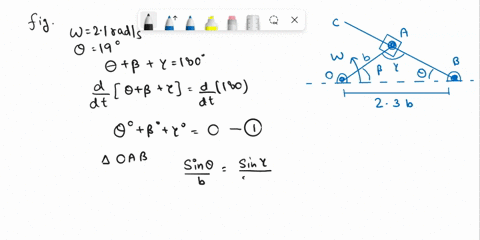 fig.
W=2.1 rad|s
θ=19°
θ+β+γ=180°
d/dt [θ+β+γ] = d/dt (180)
θ°+β°+γ° = 0 — ①
Δ OAB
Sinθ/b = Sinγ/
C
A
W
b
γ
β
θ
O
B
2.3b